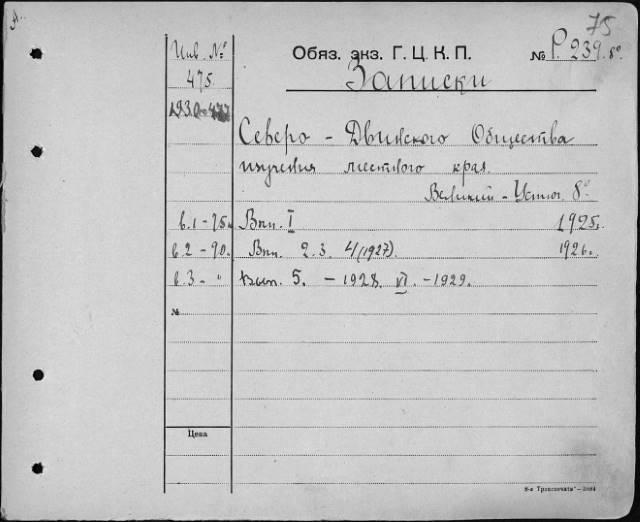 75
Инв. №
Обяз. экз. Г. Ц. К. П.
№ Р. 239. 8°
475
Записки
1930-477
Северо - Двинского Общества
изучения местного края.
Великий - Устюг. 8°
в.1 - 75к Вып. I 1925г.
в.2 - 90. Вып. 2. 3. 4/(1927). 1926г.
в.3 - " Вып. 5. - 1928. VI. - 1929.
№
Цена
8-я Транспечати — 3884